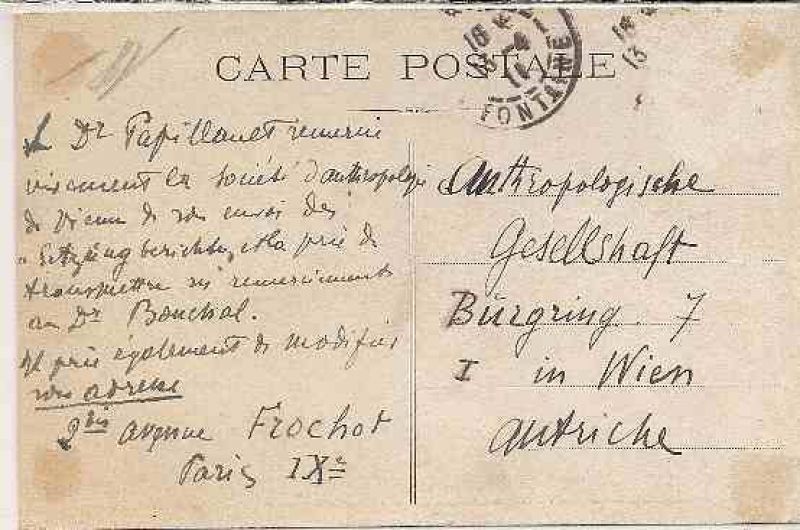 CARTE POSTALE
FONTAINE
Le Dr Papillault remercie
vivement la Société d'anthropologie
de Vienne de son envoi des
"Sitzungberichte, et la prie de
transmettre ses remerciements
au Dr Bouchal.
Il prie également de modifier
son adresse
2bis avenue Frochot
Paris IXe
Anthropologische
Gesellshaft
Burgring. 7
I in Wien
Autriche